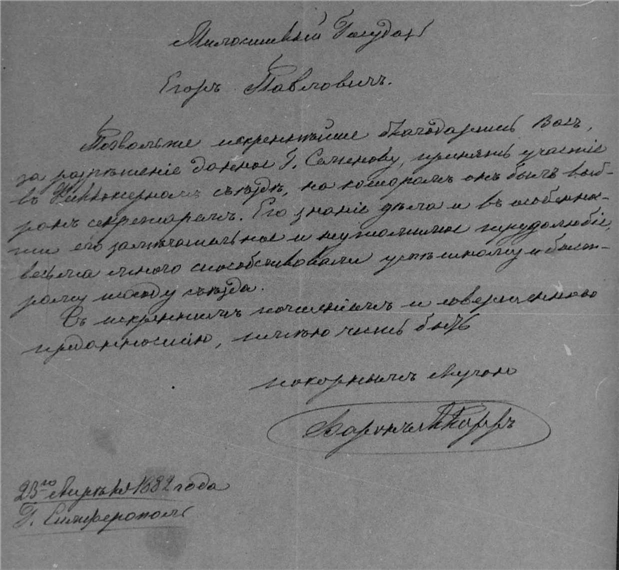 Милостивый Государь
Егоръ Павловичъ.
Позвольте искреннѣйше благодарить Васъ,
за разрѣшеніе данное Г. Семенову, принять участіе
въ съѣздѣ, на которомъ онъ былъ выб-
ранъ секретаремъ. Его знаніе дѣла и въ особеннос-
ти его замѣчательное и неутомимое трудолюбіе,
весьма много способствовали успѣшному и быст-
рому исходу съѣзда.
Съ искреннимъ почтеніемъ и совершенною
преданностію, имѣю честь быть
покорнымъ слугою
Баронъ
23го 1882 года
Г. Симферополь